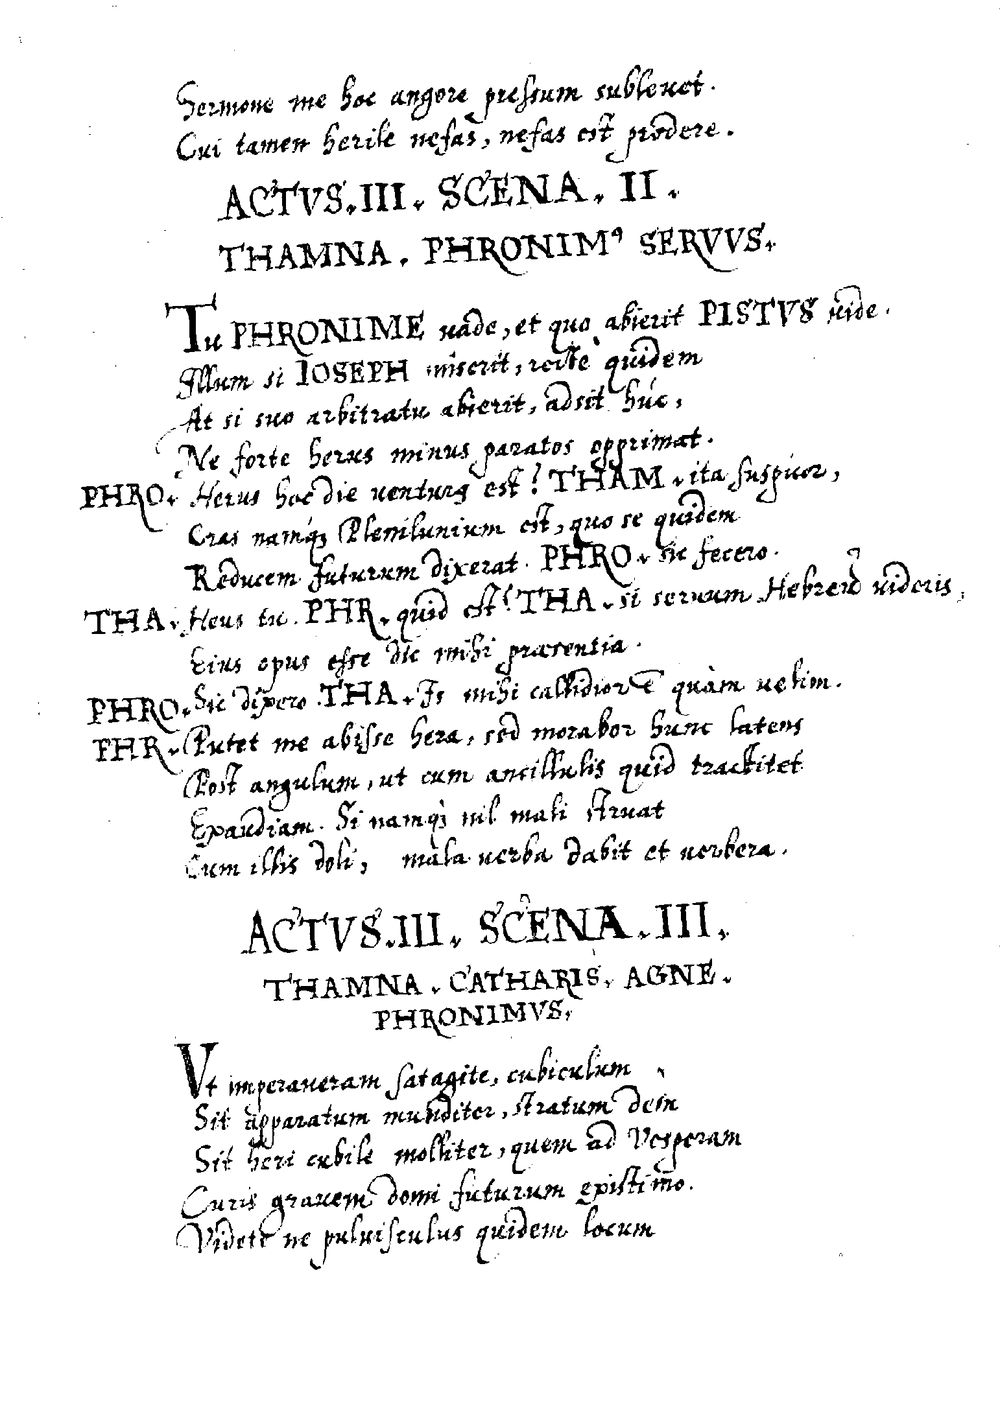 Sermone me hoc angore pressum subleuet.
Cui tamen herile nefas, nefas est prodere.
ACTVS.III. SCENA. II.
THAMNA. PHRONIMꝰ SERVVS.
Tu PHRONIME uade, et quo abierit PISTVS uide.
Illum si IOSEPH miserit, recte quidem
At si suo arbitratu abierit, adsit húc,
Ne forte herus minus paratos opprimat.
PHRO. Herus hoc die venturꝰ est? THAM. ita suspicor,
Cras namq; Plenilunium est, quo se quidem
Reducem futurum dixerat. PHRO. sic fecero.
THA. Heus tu. PHR. quid est? THA. si seruum Hebreū uideris,
Eius opus esse dic mihi præsentia.
PHRO. Sic dixero. THA. Is mihi callidior ē quàm uelim.
PHR. Putet me abisse hera, sed morabor hunc latens
Post angulum, ut cum ancillulis quid tractitet
Exaudiam. Si namq; nil mali struat
Cum illis doli, mala uerba dabit et uerbera.
ACTVS.III. SCENA.III.
THAMNA. CATHARIS. AGNE.
PHRONIMVS.
Vt imperaueram satagite, cubiculum
Sit apparatum munditer, stratum dein
Sit heri cubile molliter, quem ad Vesperam
Curis grauem domi futurum existimo.
Videte ne puluisculus quidem locum